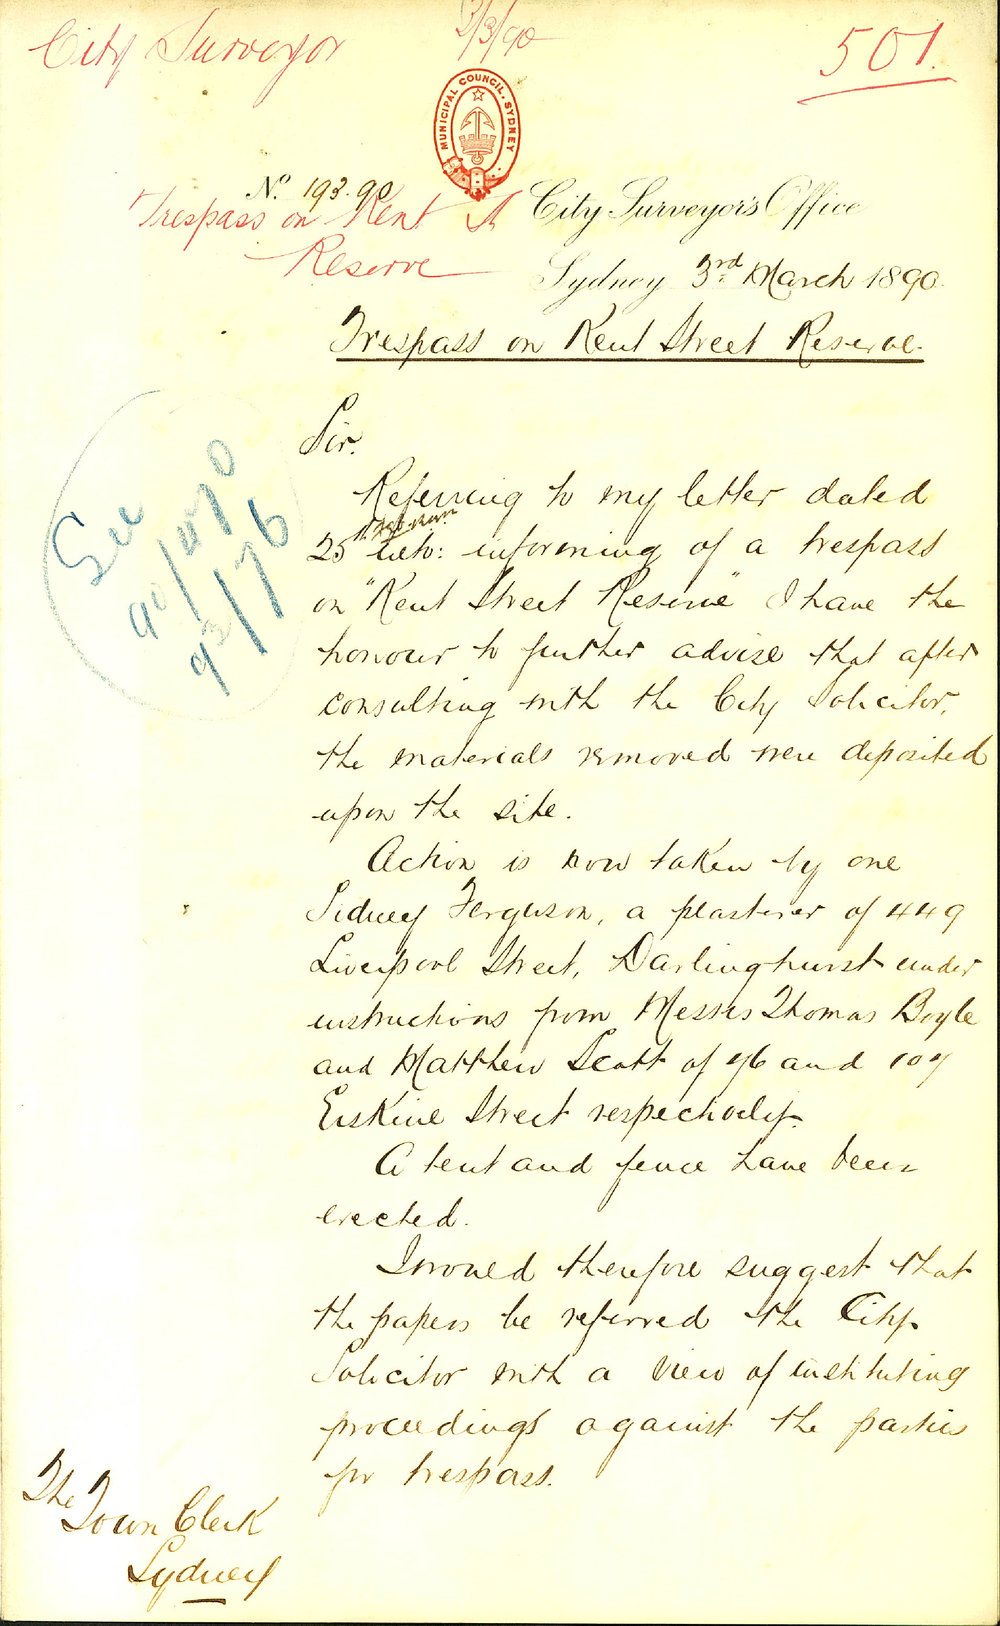 City Surveyor
3/3/90
501.
MUNICIPAL COUNCIL, SYDNEY
No. 193.90
Trespass on Kent St
Reserve
City Surveyor's Office
Sydney 3rd March 1890.
Trespass on Kent Street Reserve.
See
90/
93/176
Sir.
Referring to my letter dated
25th ulto: informing of a trespass
on "Kent Street Reserve" I have the
honour to further advise that after
consulting with the City Solicitor,
the materials removed were deposited
upon the site.
Action is now taken by one
Sidney Ferguson, a plasterer of 449
Liverpool Street, Darlinghurst under
instructions from Messrs Thomas Boyle
and Matthew Scott of 76 and 107
Erskine Street respectively.
A tent and fence have been
erected.
I would therefore suggest that
the papers be referred the City
Solicitor with a view of instituting
proceedings against the parties
for trespass.
The
Town Clerk
Sydney